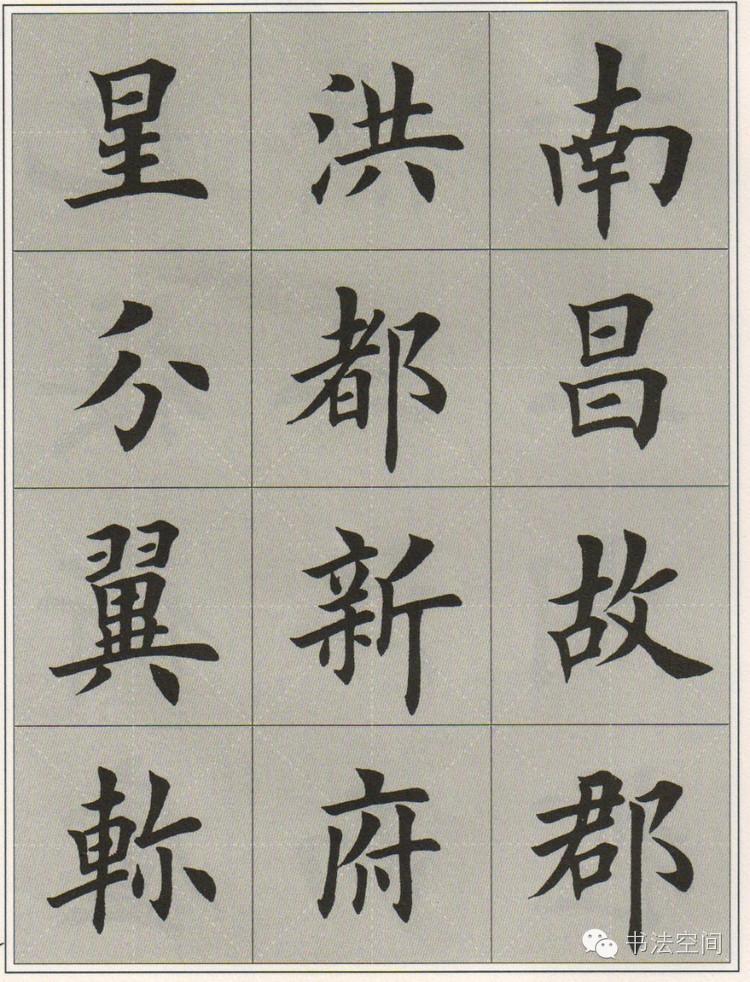 南昌故郡
洪都新府
星分翼軫
书法空间